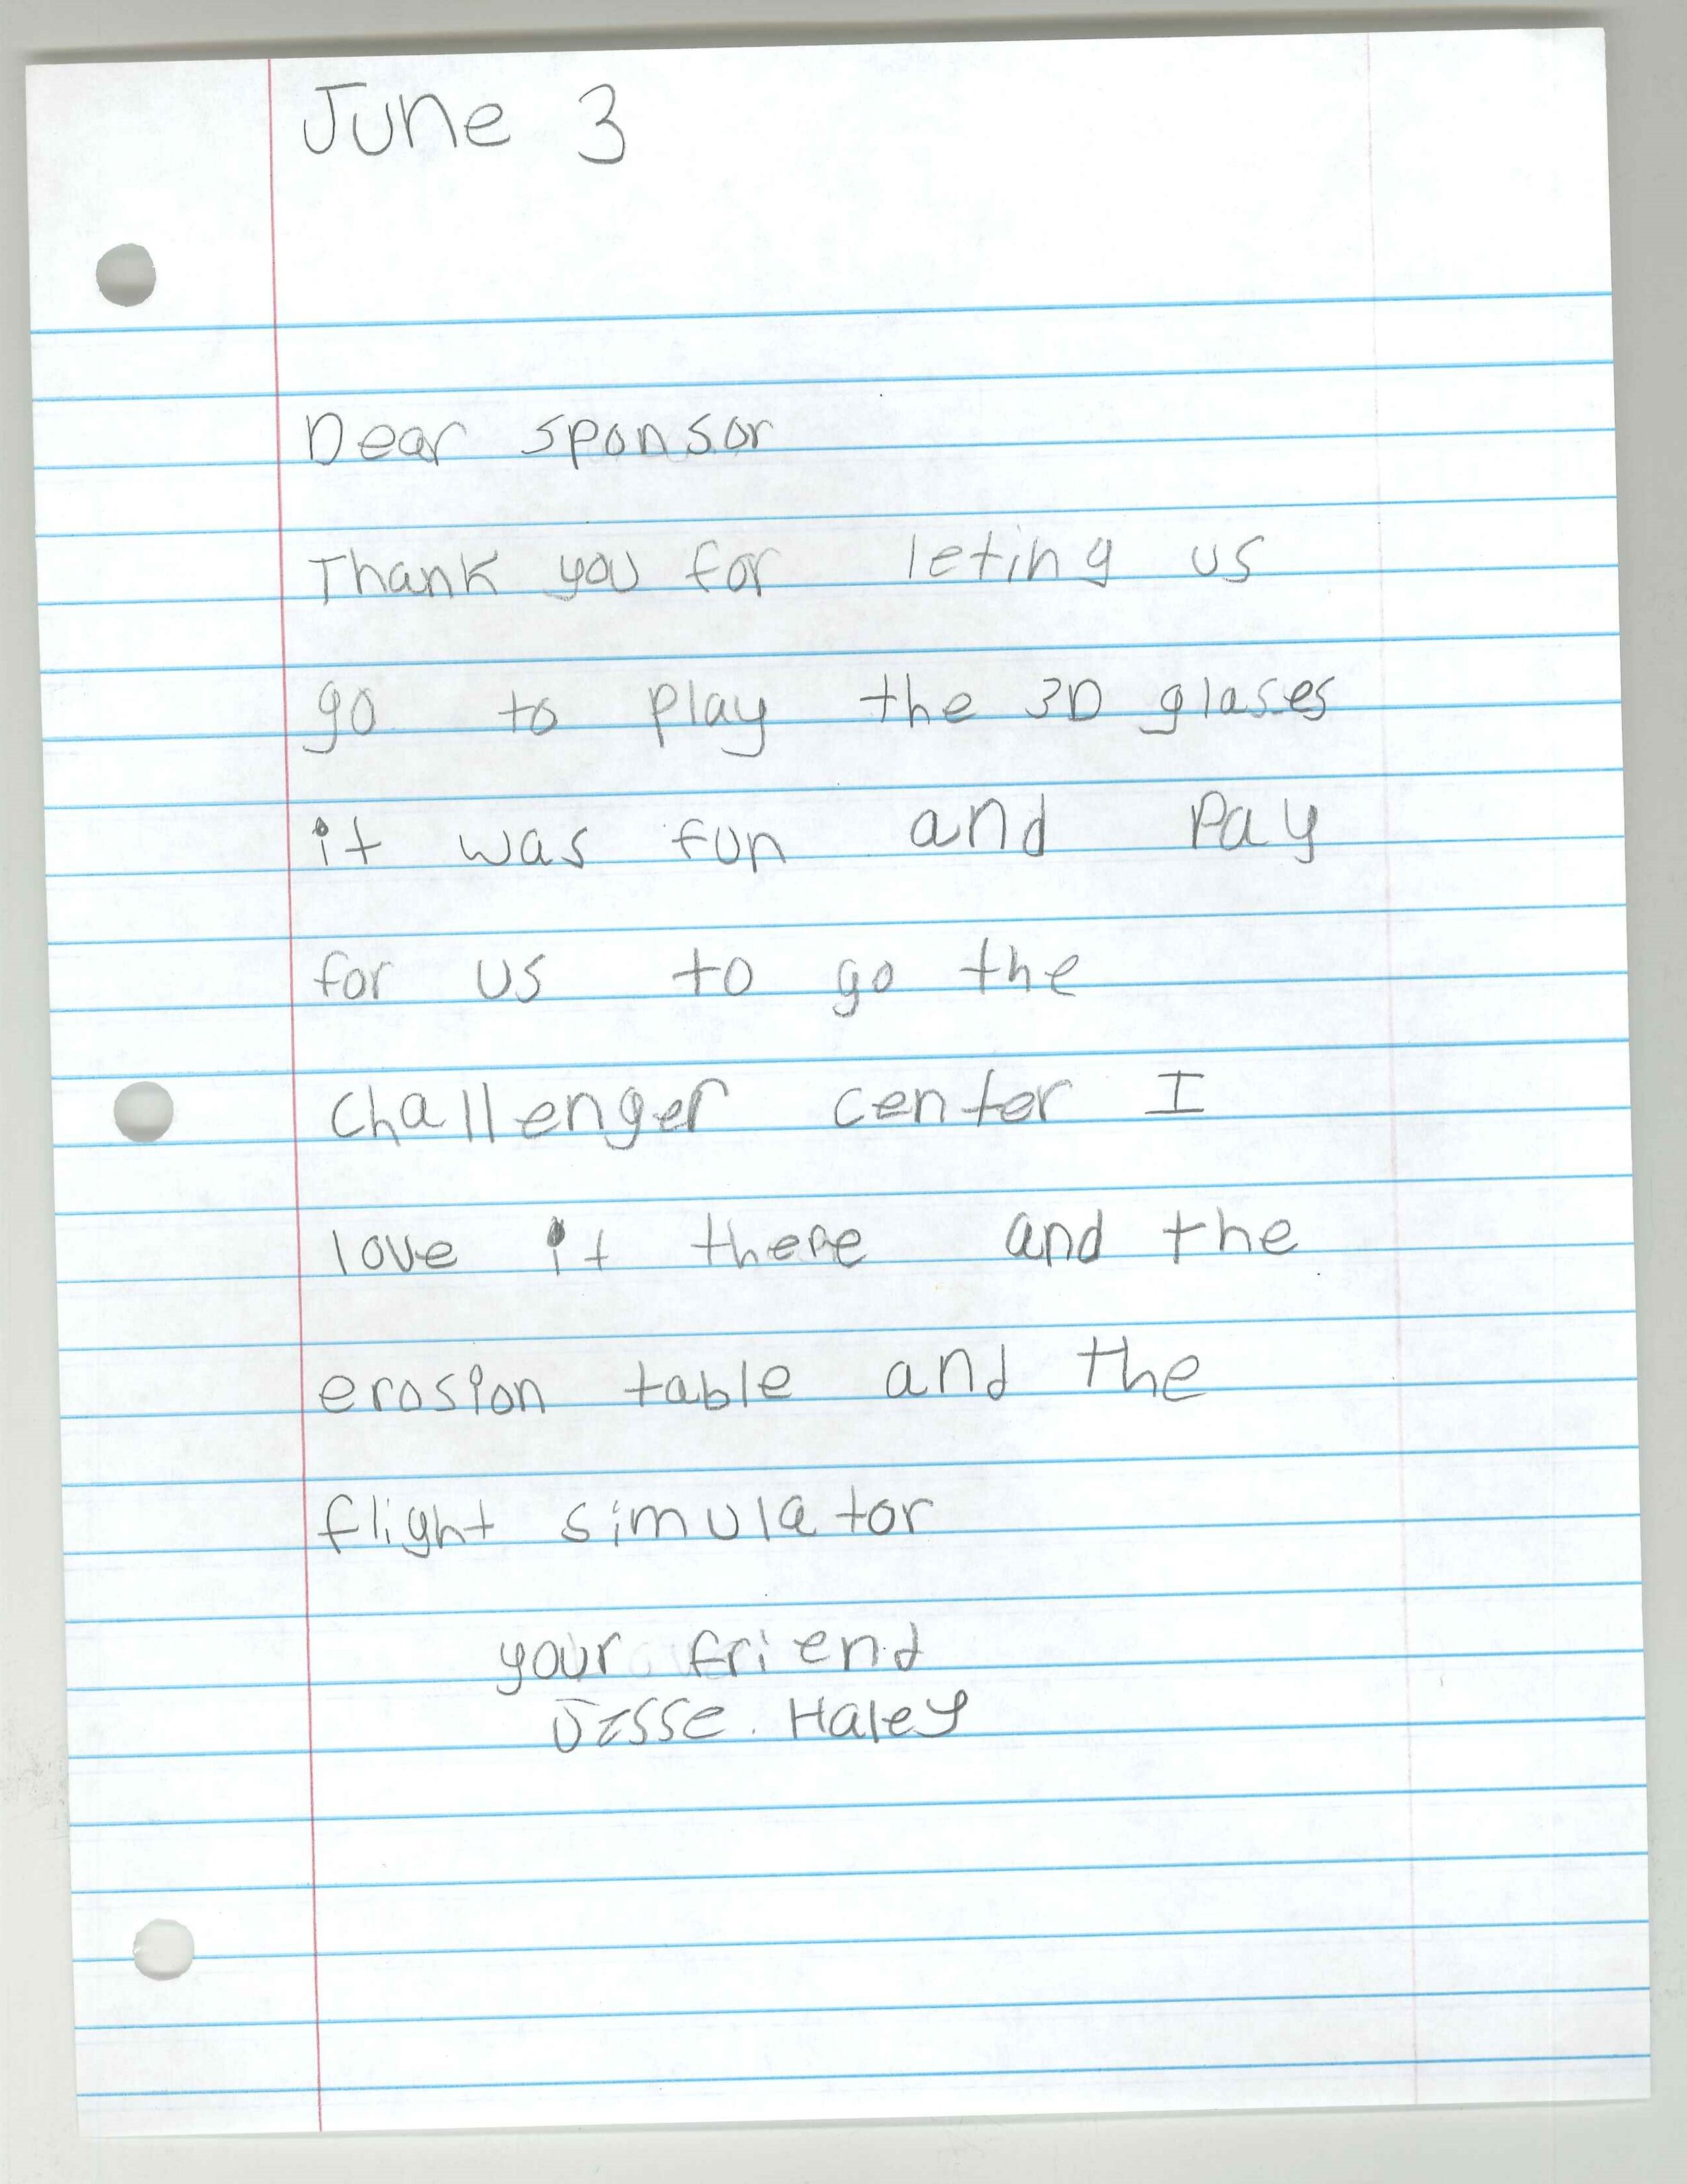 June 3
Dear sponsor
Thank you for leting us
go to play the 3D glases
it was fun and Pay
for us to go the
challenger center I
love it there and the
erosion table and the
flight simulator
your friend
Jesse. Haley